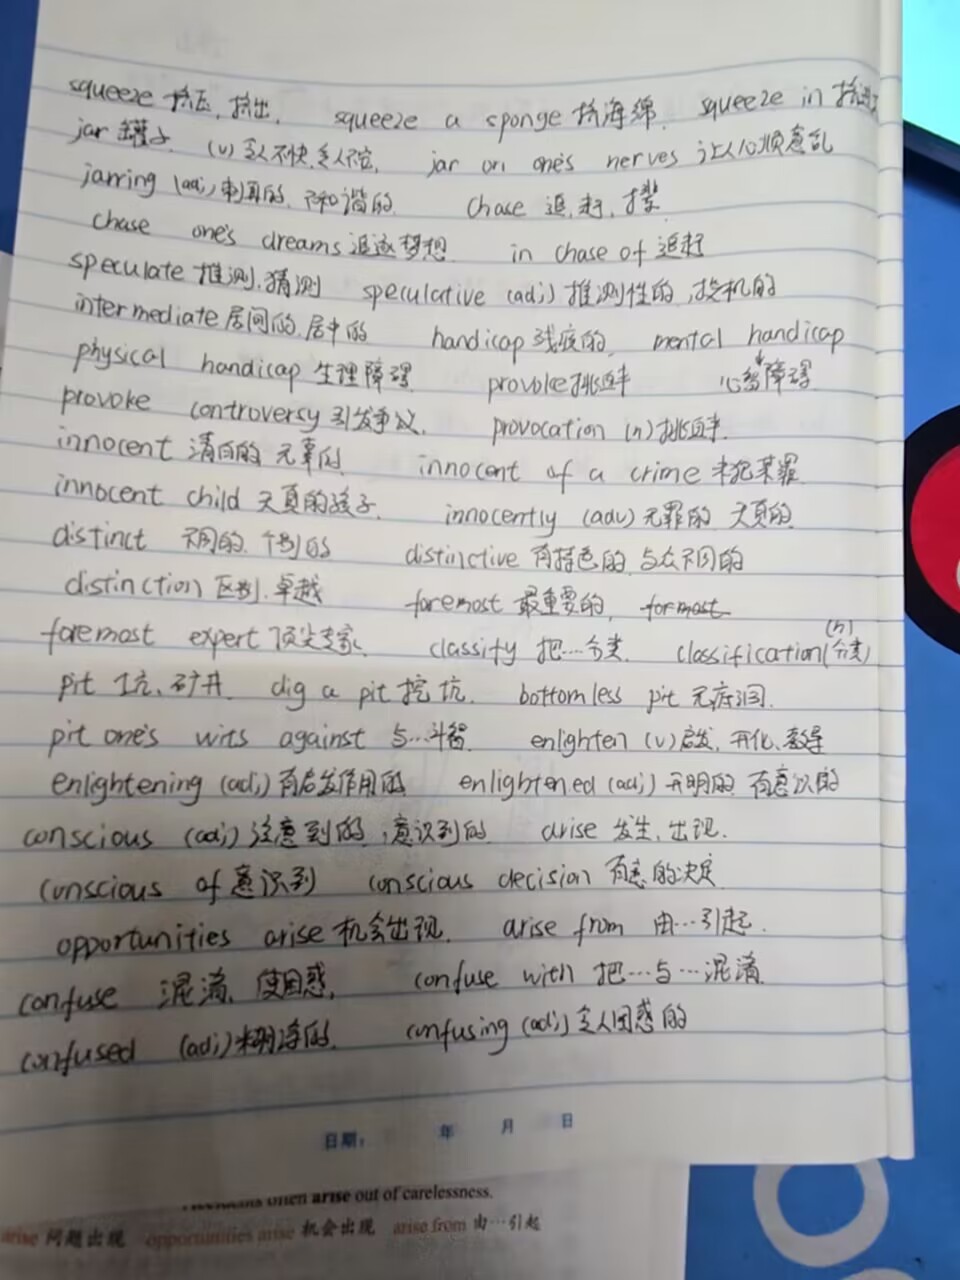 squeeze 挤压, 挤出, squeeze a sponge 挤海绵, squeeze in
jar 罐子, (v) 令人不快, jar on one's nerves 让人心烦意乱
jarring (adj) 刺耳的, 不和谐的 chase 追, 赶,
chase one's dreams 追逐梦想 in chase of 追赶
speculate 推测, 猜测 speculative (adj) 推测性的, 投机的
intermediate 居间的, 居中的 handicap 残疾的, mental handicap
physical handicap 生理障碍 provoke 挑衅 心智障碍
provoke controversy 引发争议, provocation (n) 挑衅
innocent 清白的 无辜的 innocent of a crime 未犯某罪
innocent child 天真的孩子, innocently (adv) 无罪的 天真的
distinct 不同的, 个别的 distinctive 有特色的 与众不同的
distinction 区别, 卓越 foremost 最重要的, formost
foremost expert 顶尖专家, classify 把…分类 classification (n) (分类)
pit 坑, 矿井 dig a pit 挖坑, bottomless pit 无底洞
pit one's wits against 与…斗智 enlighten (v) 启发, 开化, 教导
enlightening (adj) 有启发作用的 enlightened (adj) 开明的 有意识的
conscious (adj) 注意到的, 意识到的 arise 发生, 出现,
conscious of 意识到 conscious decision 有意的决定
opportunities arise 机会出现, arise from 由…引起,
confuse 混淆, 使困惑, confuse with 把…与…混淆
confused (adj) 糊涂的, confusing (adj) 令人困惑的
日期: 年 月 日
often arise out of carelessness.
arise 问题出现 opportunities arise 机会出现 arise from 由…引起